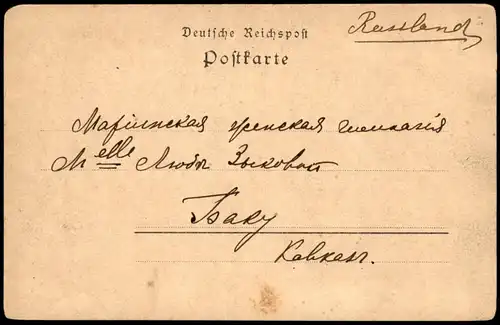 Russland
Deutsche Reichspost
Postkarte
Маріинская женская гимназія
Melle Любѣ Зыковой
Баку
Кавказ.